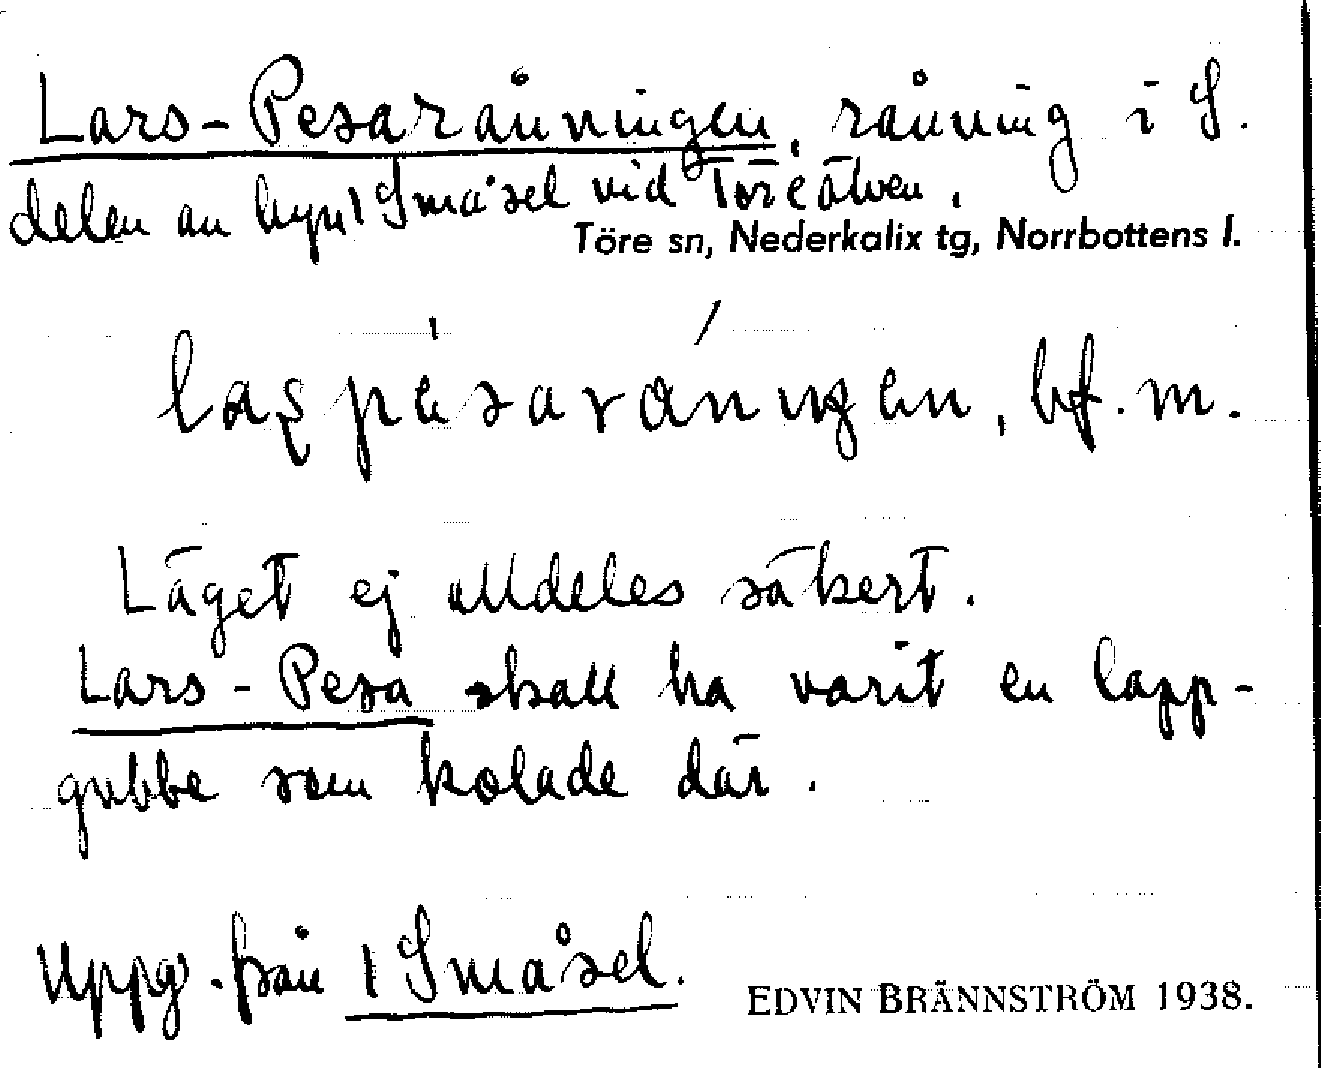 Lars-Pesaråningen, råning i S.
delen av byn 1 Småsel vid Töreälven.
Töre sn, Nederkalix tg, Norrbottens l.
bf. m.
Läget ej alldeles säkert.
Lars-Pesa skall ha varit en lapp-
gubbe som kolade där.
Uppg. från 1 Småsel.
EDVIN BRÄNNSTRÖM 1938.